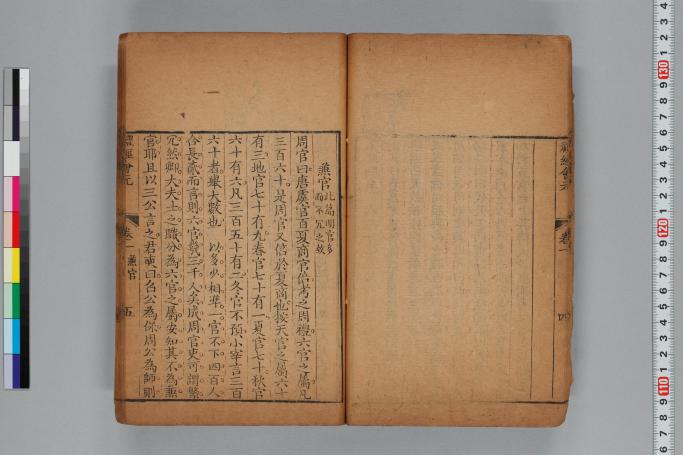 兼官此篇明官多
而不冗之故
周官曰唐虞官百夏商官倍考之周禮六官之屬凡
三百六十是周官又倍於夏商也按天官之屬六十
有三地官七十有九春官七十有一夏官七十秋官
六十有六凡三百五十有二冬官不預小宰言三百
六十者舉大數也 以多少相準一官不下四百人
合長貳而言則六官幾三千人矣成周官吏可謂繁
冗然卿大夫士之職分為六官之屬安知其不為兼
官耶且以三公言之君奭曰召公為保周公為師則
禮經會元
卷一
兼官
五
禮經會元
卷一
四